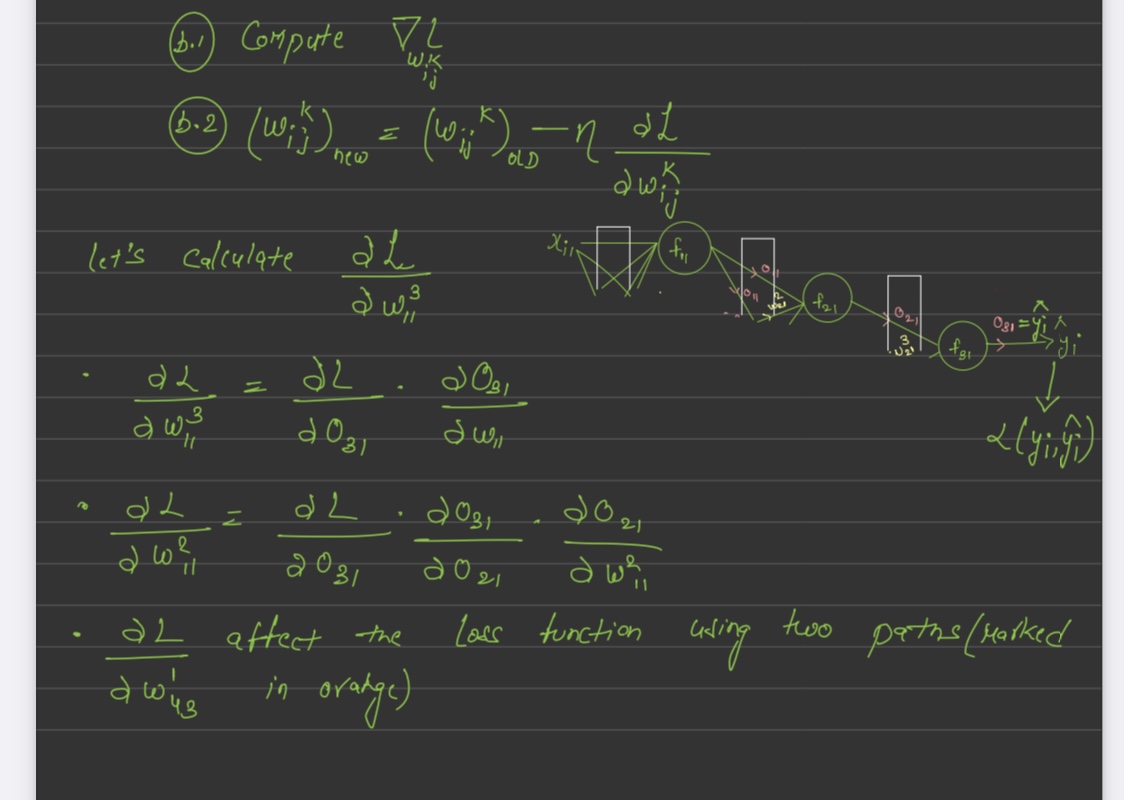 b.1 Compute ∇L w_ij^k
b.2 (w_ij^k)_new = (w_ij^k)_OLD − η ∂L/∂w_ij^k
let's calculate ∂L/∂w_11^3
x_i1 f_11 O_11 O_11 w_21^2 f_21 O_21 w_21^3 f_31 O_31 = ŷ_i ŷ_i
L(y_i, ŷ_i)
· ∂L/∂w_11^3 = ∂L/∂O_31 · ∂O_31/∂w_11
· ∂L/∂w_11^2 = ∂L/∂O_31 · ∂O_31/∂O_21 · ∂O_21/∂w_11^2
· ∂L/∂w_43^1 affect the loss function using two paths (marked
in orange)